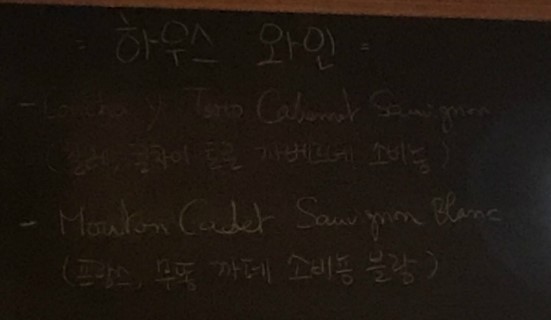 = 하우스 와인 =
- Concha y Toro Cabernet Sauvignon
(칠레, 토로 까베르네 소비뇽)
- Mouton Cadet Sauvignon Blanc
(프랑스, 무똥 까데 소비뇽 블랑)